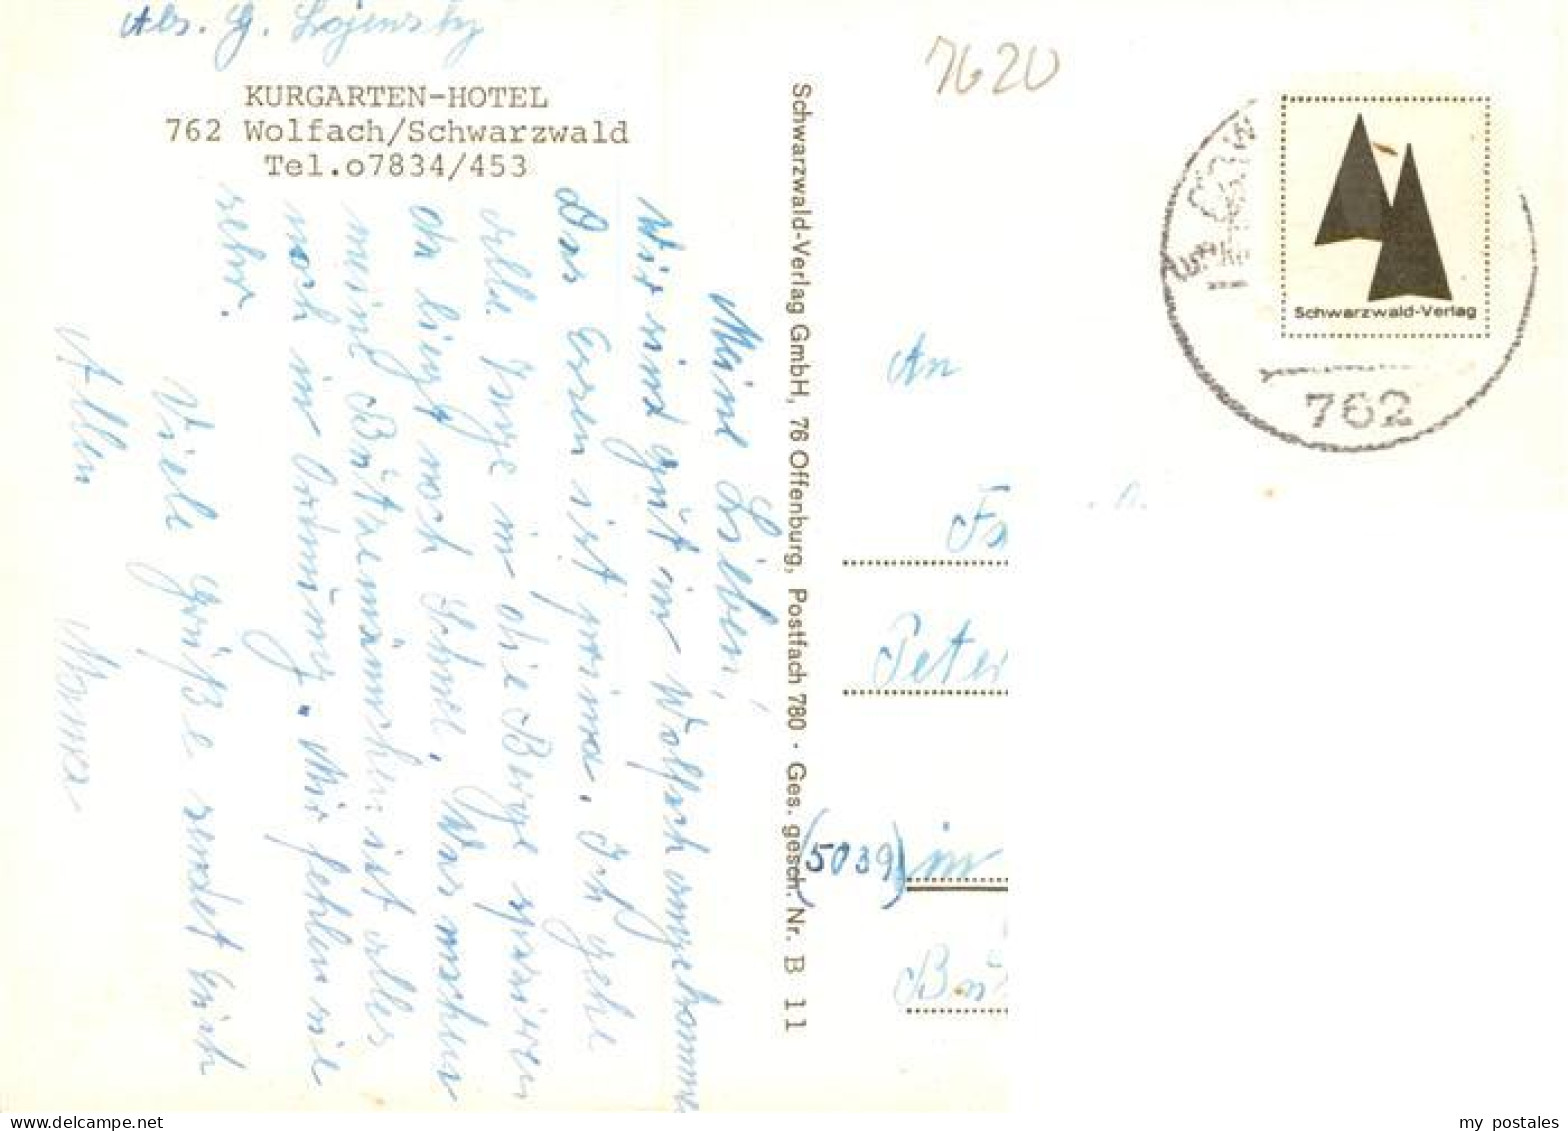 Abs. G. Lojewsky
KURGARTEN-HOTEL
762 Wolfach/Schwarzwald
Tel.o7834/453
Meine Lieben,
Wir sind gut in Wolfach angekommen
Das Essen ist prima. Ich gehe
alle Tage in die Berge spazieren
da liegt noch Schnee. Was machen
meine ist alles
noch in Ordnung. Mir fehlen sie
sehr.
Viele Grüße sendet Euch
Allen Mama
Schwarzwald-Verlag GmbH, 76 Offenburg, Postfach 780 · Ges. gesch. Nr. B 11
7620
Schwarzwald-Verlag
762
An
Fa
Peter
(5039) in
my postales